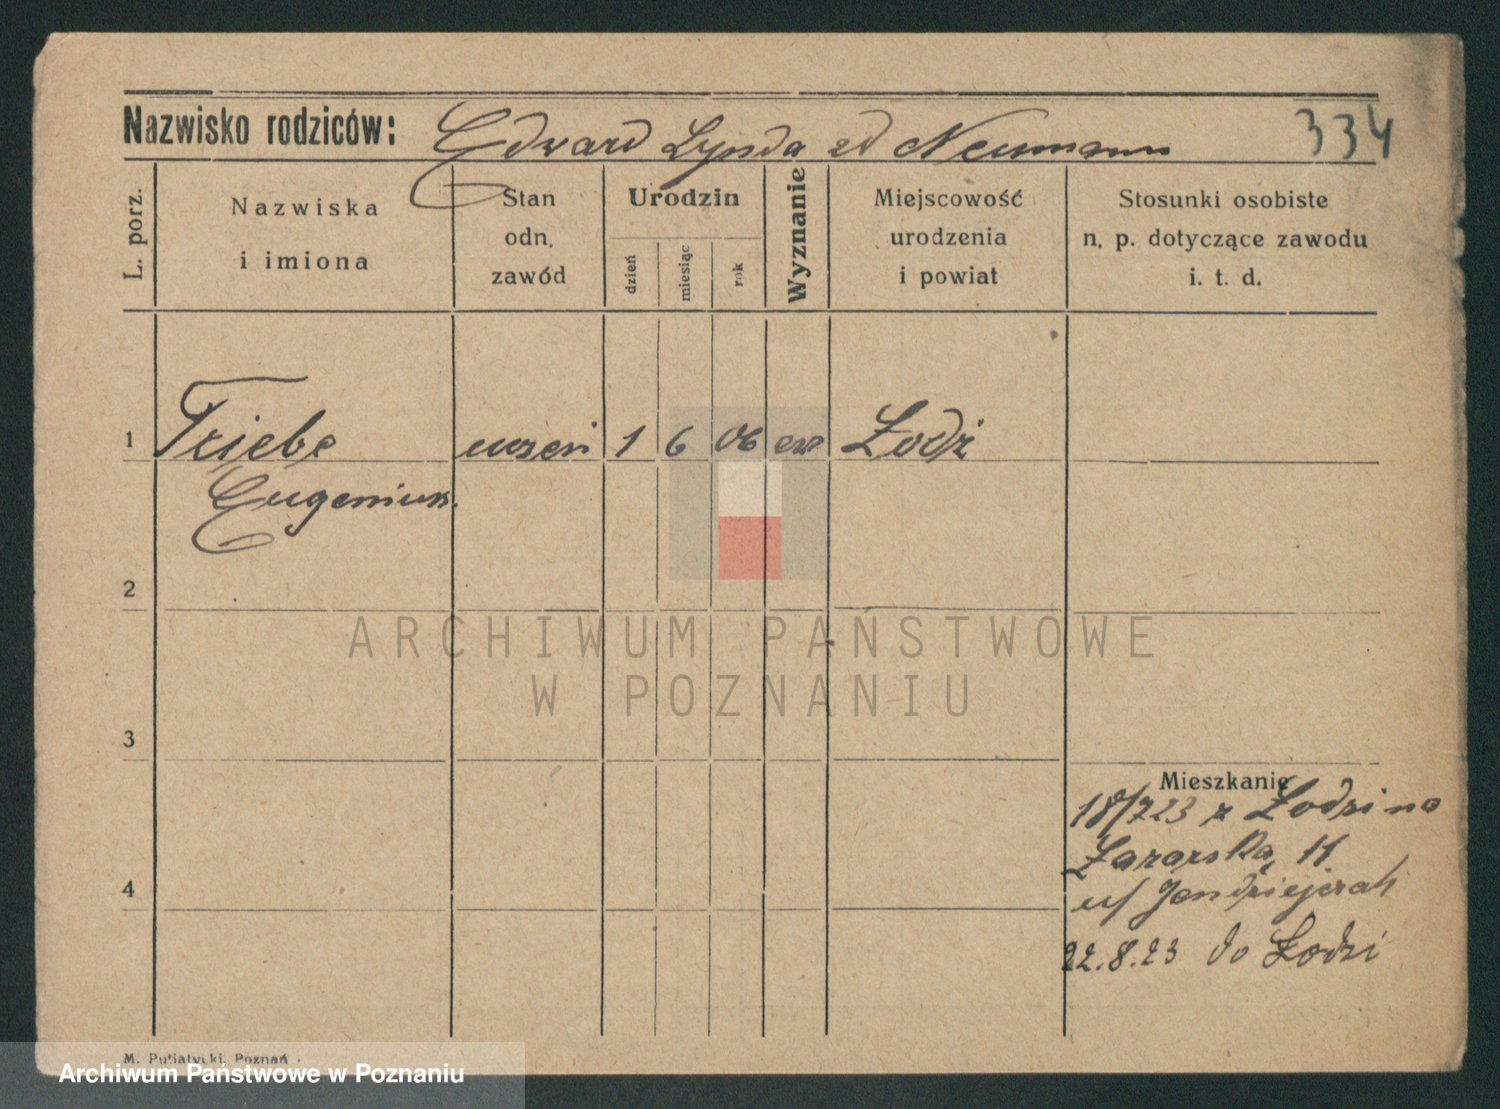 Nazwisko rodziców: Edward Lynda zd Neumann 334
L. porz.
Nazwiska
i imiona
Stan
odn.
zawód
Urodzin
dzień
miesiąc
rok
Wyznanie
Miejscowość
urodzenia
i powiat
Stosunki osobiste
n. p. dotyczące zawodu
i. t. d.
1 Triebe uczeń 1 6 06 ew Łodź
Eugeniusz.
2
ARCHIWUM PAŃSTWOWE
W POZNANIU
3
Mieszkanie
18/7 23 z Łodzi na
11
4
22.8.23 do Łodzi
M. Putiatycki, Poznań
Archiwum Państwowe w Poznaniu